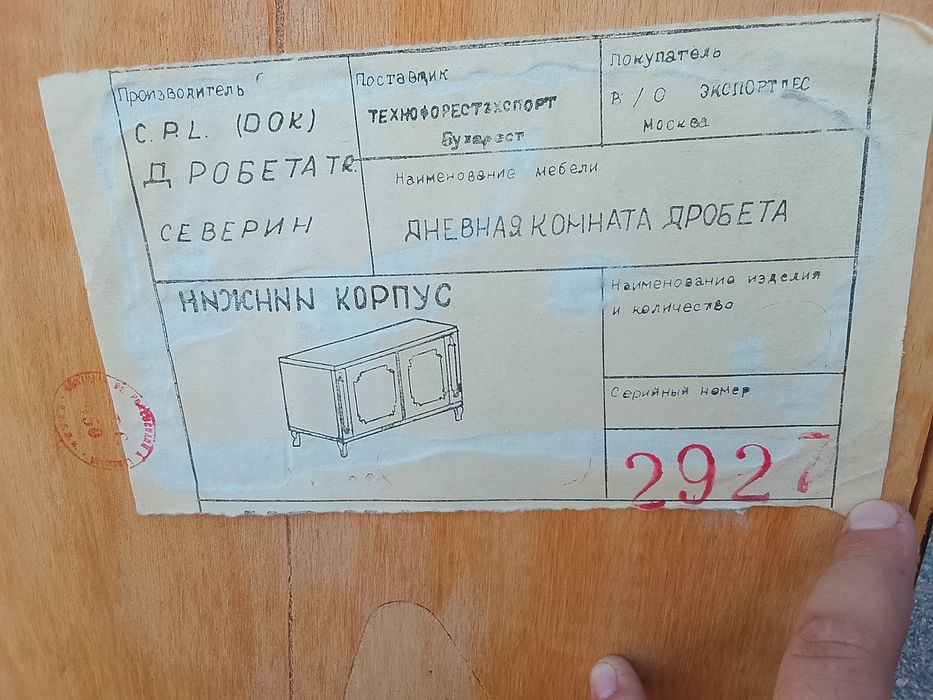 Производитель
C.P.L. (DOK)
ДРОБЕТА TR.
СЕВЕРИН
Поставщик
ТЕХНОФОРЕСТЭКСПОРТ
Бухарест
Покупатель
В/О ЭКСПОРТЛЕС
Москва
Наименование мебели
ДНЕВНАЯ КОМНАТА ДРОБЕТА
НИЖНИИ КОРПУС
Наименование изделия
и количество
Серийный номер
2927